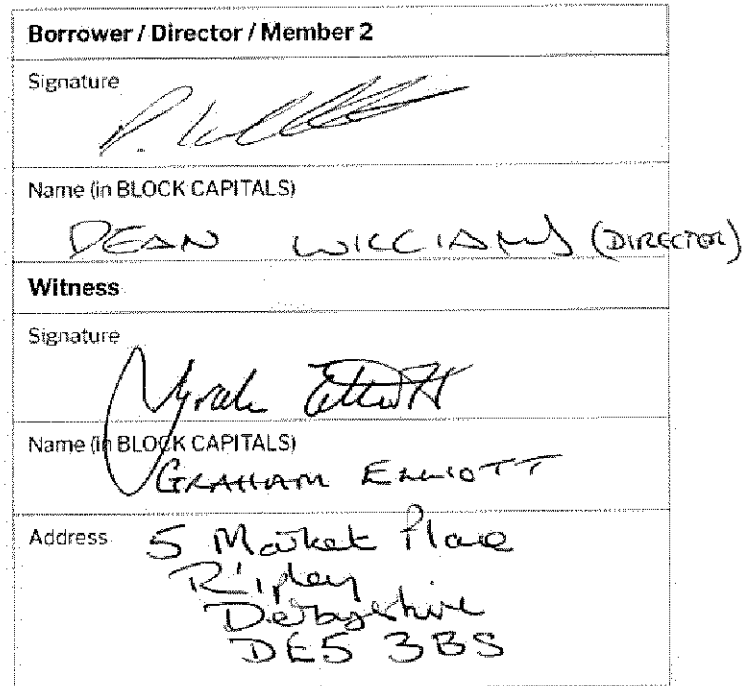 Borrower / Director / Member 2
Signature
Name (in BLOCK CAPITALS)
DEAN WILLIAMS (DIRECTOR)
Witness
Signature
Name (in BLOCK CAPITALS)
GRAHAM ELLIOTT
Address 5 Market Place
Ripley
Derbyshire
DE5 3BS